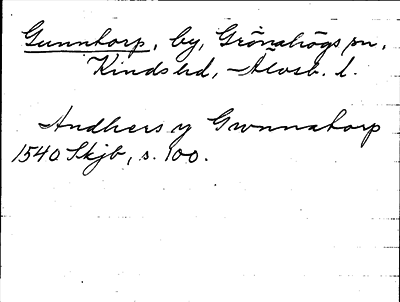 Gunntorp, by, Grönahögs sn,
Kinds hd, Älvsb. l.
Andhers y Gwnnatorp
1540 Skjb, s. 100.